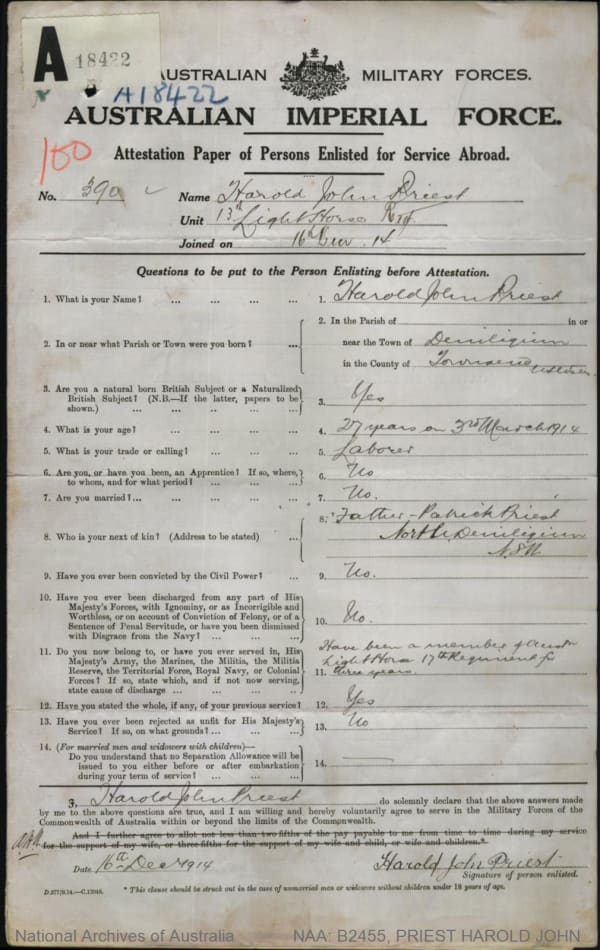 A 18422
A18422
AUSTRALIAN MILITARY FORCES.
AUSTRALIAN IMPERIAL FORCE.
100
Attestation Paper of Persons Enlisted for Service Abroad.
No. 390 Name Harold John Priest
Unit 13th Light Horse Rgt.
Joined on 16th Dec. 14
Questions to be put to the Person Enlisting before Attestation.
1. What is your Name? ... ... ... ... 1. Harold John Priest
2. In or near what Parish or Town were you born? ... 2. In the Parish of in or
near the Town of Deniliquin
in the County of Townsend
3. Are you a natural born British Subject or a Naturalized
British Subject? (N.B.—If the latter, papers to be
shown.) ... ... ... ... ... 3. Yes
4. What is your age? ... ... ... ... 4. 27 years on 3rd March 1914
5. What is your trade or calling? ... ... ... 5. Laborer
6. Are you, or have you been, an Apprentice? If so, where,
to whom, and for what period? ... ... ... 6. No
7. Are you married? ... ... ... ... ... 7. No.
8. Who is your next of kin? (Address to be stated) ... 8. Father - Patrick Priest
North Deniliquin
N.S.W.
9. Have you ever been convicted by the Civil Power? ... 9. No.
10. Have you ever been discharged from any part of His
Majesty's Forces, with Ignominy, or as Incorrigible and
Worthless, or on account of Conviction of Felony, or of a
Sentence of Penal Servitude, or have you been dismissed
with Disgrace from the Navy? ... ... ... 10. No.
11. Do you now belong to, or have you ever served in, His
Majesty's Army, the Marines, the Militia, the Militia
Reserve, the Territorial Force, Royal Navy, or Colonial
Forces? If so, state which, and if not now serving,
state cause of discharge ... ... ... ...
Have been a member of Austn
Light Horse 17th Regiment for
11. three years.
12. Have you stated the whole, if any, of your previous service? 12. Yes
13. Have you ever been rejected as unfit for His Majesty's
Service? If so, on what grounds? ... ... ... 13. No
14. (For married men and widowers with children)—
Do you understand that no Separation Allowance will be
issued to you either before or after embarkation
during your term of service? ... ... ... 14. —
I, Harold John Priest do solemnly declare that the above answers made
by me to the above questions are true, and I am willing and hereby voluntarily agree to serve in the Military Forces of the
Commonwealth of Australia within or beyond the limits of the Commonwealth.
And I further agree to allot not less than two-fifths of the pay payable to me from time to time during my service
for the support of my wife, or three-fifths for the support of my wife and child, or wife and children.*
Date 16th Dec 1914 Harold John Priest
Signature of person enlisted.
D.277/9.14.—C.12048. * This clause should be struck out in the case of unmarried men or widowers without children under 18 years of age.
National Archives of Australia NAA: B2455, PRIEST HAROLD JOHN